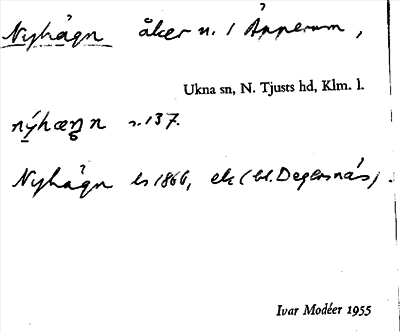 Nyhagn åker n. i Äpperum,
Ukna sn, N. Tjusts hd, Klm. l.
s. 137.
Nyhagn ls 1866, ek (bl. Degersnäs).
Ivar Modéer 1955